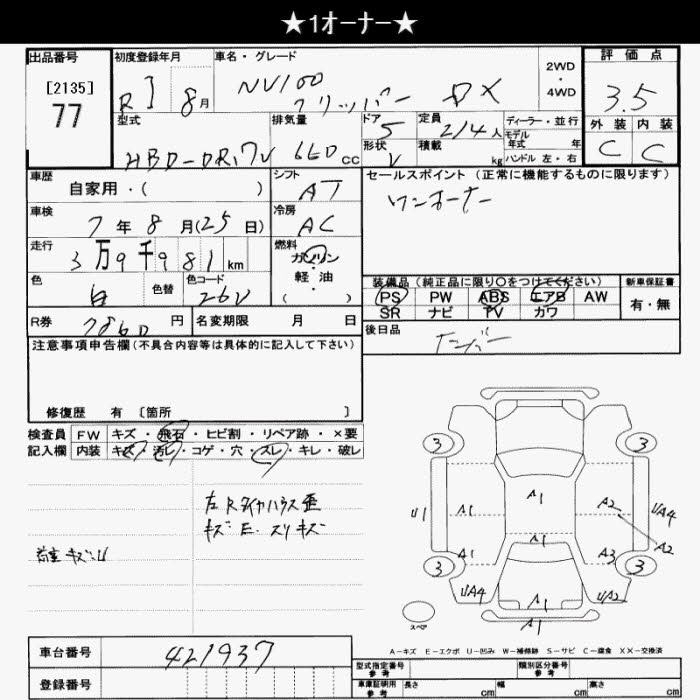 ★1オーナー★
出品番号
[2135]
77
初度登録年月
R 1 8月
車名・グレード
NV100
クリッパー DX
2WD
・
4WD
評価点
3.5
外装 内装
C C
型式
HBD-DR17V
排気量
660 cc
ドア
5
形状
V
定員
2/4人
積載
kg
ディーラー・並行
モデル
年式 年
ハンドル 左・右
車歴
自家用・( )
シフト
AT
セールスポイント (正常に機能するものに限ります)
ワンオーナー
車検
7年8月(25日)
冷房
AC
走行
3万9千981km
燃料
ガソリン
軽・油
( )
色
白
色替
色コード
26U
装備品 (純正品に限り〇をつけてください)
PS PW ABS エアB AW
SR ナビ TV カワ
新車保証書
有・無
R券
7860 円
名変期限 月 日
後日品
注意事項申告欄(不具合内容等は具体的に記入して下さい)
修復歴 有 [箇所 ]
検査員
記入欄
FW キズ・飛石・ヒビ割・リペア跡・×要
内装 キズ・汚レ・コゲ・穴・スレ・キレ・破レ
左Rタイヤハウス歪
キズ E. スリキズ
荷室キズ・U
3 3
A1
U1 A1 A2 UA4
A1 A2
A1 A3
3 3
UA4 A1 UA2
A1
A1
スペア
A-キズ E-エクボ U-凹み W-補修跡 S-サビ C-腐食 XX-交換済
車台番号
421937
登録番号
型式指定番号
参考
類別区分番号
参考
車庫証明用
参考
長さ cm 幅 cm 高さ cm